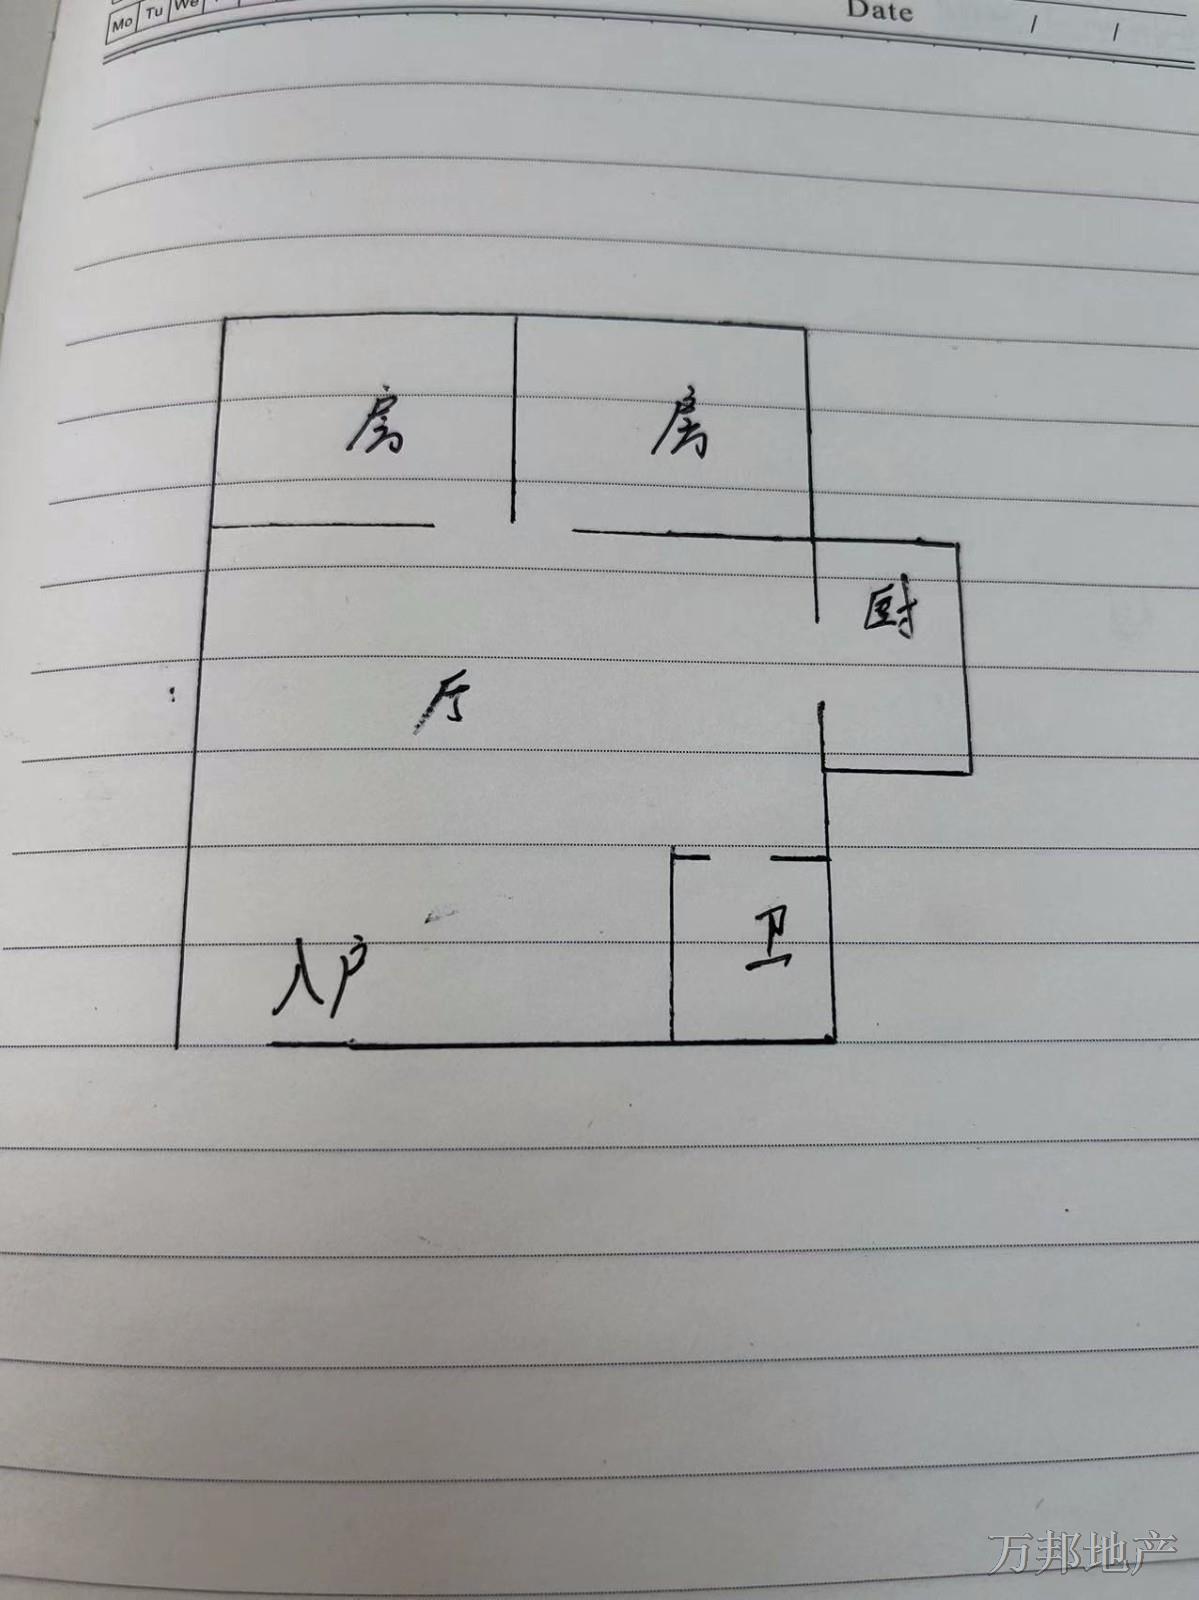 Mo Tu We
Date / /
房 房
厨
厅
卫
入户
万邦地产